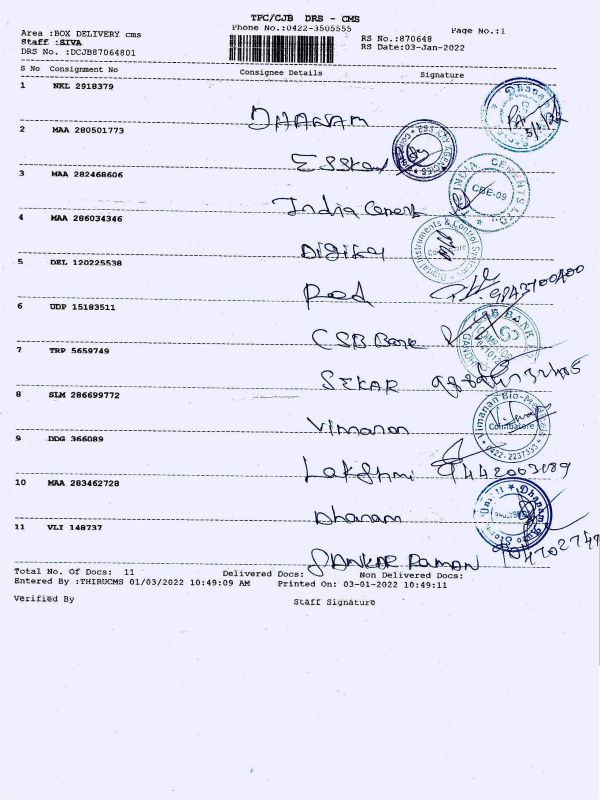 TPC/CJB DRS - CMS
Phone No.:0422-3505555
Page No.:1
Area :BOX DELIVERY cms
Staff :SIVA
DRS No. :DCJB87064801
RS No.:870648
RS Date:03-Jan-2022
S No Consignment No Consignee Details Signature
1 NKL 2918379
DHANAM
2 MAA 280501773
ESSkay
3 MAA 282468606
India Cement
INDIA CEMENTS LTD
CBE-09
4 MAA 286034346
Digital Instruments & Control Systems
5 DEL 120225538
9843700400
6 UDP 15183511
CSB Bank
CSB BANK
7 TRP 5659749
SEKAR
8 SLM 286699772
Vimanan
Vimanan Bio-
Coimbatore
0422 - 2237353
9 DDG 366089
Lakshmi
10 MAA 283462728
Dhanam
Unit II * Dhanam
11 VLI 148737
SHANKAR RAMAN
Total No. Of Docs: 11 Delivered Docs: Non Delivered Docs:
Entered By :THIRUCMS 01/03/2022 10:49:09 AM Printed On: 03-01-2022 10:49:11
Verified By Staff Signature